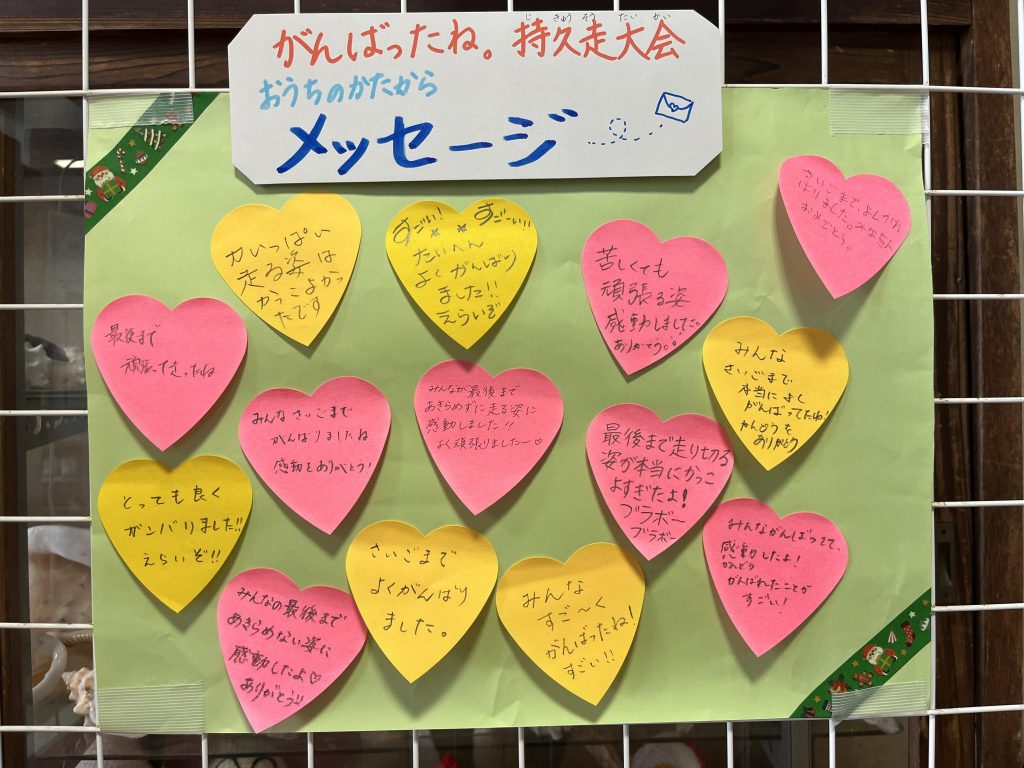 がんばったね。持久走大会
じきゅうそうたいかい
おうちのかたから
メッセージ
力いっぱい
走る姿は
かっこよかっ
たです
すごい! すごーい!!
たいへん
よくがんばり
ました!!
えらいぞ
苦しくても
頑張る姿
感動しました
ありがとう
さいごまで、よくがんば
りました。みなさん
おめでとう。
最後まで
頑張って走ったね
みんなさいごまで
がんばりましたね
感動をありがとう!
みんなが最後まで
あきらめずに走る姿に
感動しました!!
よく頑張りましたー♡
最後まで走り切る
姿が本当にかっこ
よすぎたよ!
ブラボー
ブラボー
みんな
さいごまで
本当によく
がんばってたね!
かんどうを
ありがとう
とっても良く
ガンバりました!!
えらいぞ!!
みんなの最後まで
あきらめない姿に
感動したよ♡
ありがとう!!
さいごまで
よくがんばり
ました。
みんな
すご〜く
がんばったね!
すごい!!
みんながんばってて、
感動したよ!
かんどう
がんばれたことが
すごい!